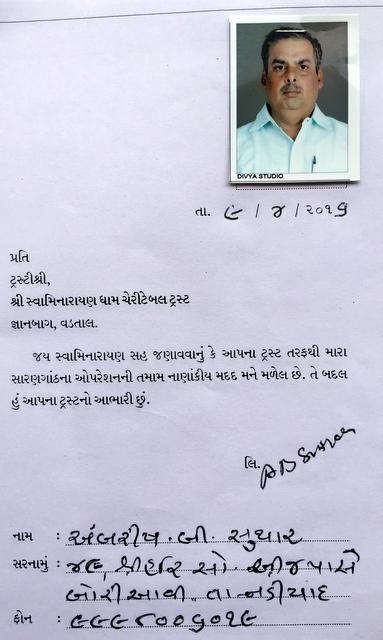 DIVYA STUDIO
તા. ૯ / ૪ / ૨૦૧૬
પ્રતિ
ટ્રસ્ટીશ્રી,
શ્રી સ્વામિનારાયણ ધામ ચેરીટેબલ ટ્રસ્ટ
જ્ઞાનબાગ, વડતાલ.
જય સ્વામિનારાયણ સહ જણાવવાનું કે આપના ટ્રસ્ટ તરફથી મારા
સારણગાંઠના ઓપરેશનની તમામ નાણાંકીય મદદ મને મળેલ છે. તે બદલ
હું આપના ટ્રસ્ટનો આભારી છું.
લિ.
નામ : અંબરીષ. બી. સુથાર
સરનામું : ૪૯, શ્રીહરિ સો.
બોરીઆવી. તા-નડીયાદ
ફોન : ૯૯૯૮૦૦૬૦૧૯